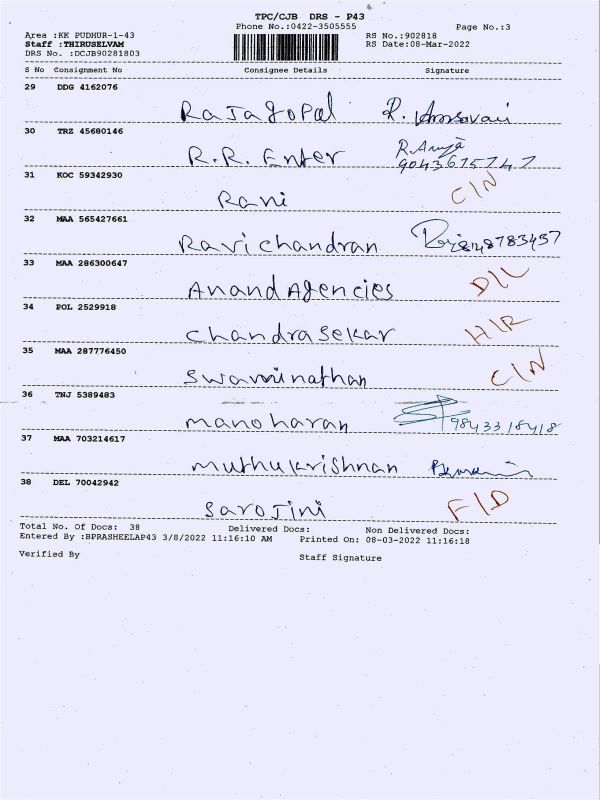 TPC/CJB DRS - P43
Phone No.:0422-3505555
Page No.:3
Area :KK PUDHUR-1-43
RS No.:902818
Staff :THIRUSELVAM
RS Date:08-Mar-2022
DRS No. :DCJB90281803
S No Consignment No Consignee Details Signature
29 DDG 4162076
Rajagopal R.
30 TRZ 45680146
R.R. Enter R.
31 KOC 59342930
Rani C/N
32 MAA 565427661
Ravichandran
33 MAA 286300647
Anand Agencies D/L
34 POL 2529918
Chandrasekar H/R
35 MAA 287776450
Swaminathan C/N
36 TNJ 5389483
Manoharan
37 MAA 703214617
Muthukrishnan
38 DEL 70042942
Sarojini F/D
Total No. Of Docs: 38 Delivered Docs: Non Delivered Docs:
Entered By :BPRASHEELAP43 3/8/2022 11:16:10 AM Printed On: 08-03-2022 11:16:18
Verified By Staff Signature